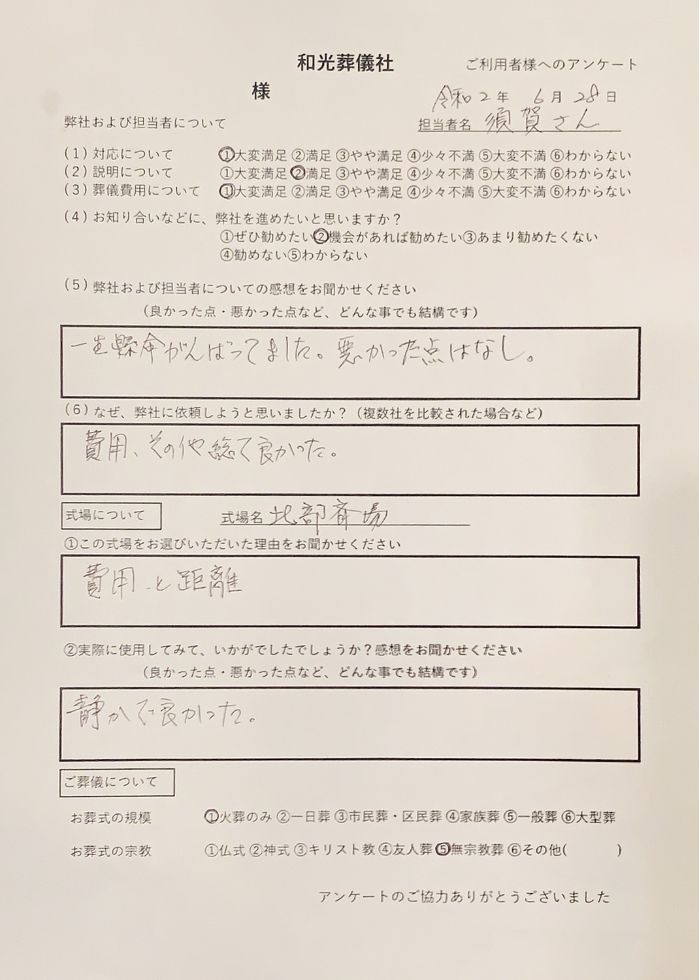 和光葬儀社 ご利用者様へのアンケート
様
令和2年 6月 28日
弊社および担当者について 担当者名 須賀さん
(1) 対応について ①大変満足 ②満足 ③やや満足 ④少々不満 ⑤大変不満 ⑥わからない
(2) 説明について ①大変満足 ②満足 ③やや満足 ④少々不満 ⑤大変不満 ⑥わからない
(3) 葬儀費用について ①大変満足 ②満足 ③やや満足 ④少々不満 ⑤大変不満 ⑥わからない
(4) お知り合いなどに、弊社を進めたいと思いますか？
①ぜひ勧めたい②機会があれば勧めたい③あまり勧めたくない
④勧めない⑤わからない
(5) 弊社および担当者についての感想をお聞かせください
（良かった点・悪かった点など、どんな事でも結構です）
一生懸命がんばってました。悪かった点はなし。
(6) なぜ、弊社に依頼しようと思いましたか？（複数社を比較された場合など）
費用、その他総て良かった。
式場について 式場名 北部斉場
①この式場をお選びいただいた理由をお聞かせください
費用と距離
②実際に使用してみて、いかがでしたでしょうか？感想をお聞かせください
（良かった点・悪かった点など、どんな事でも結構です）
静かで良かった。
ご葬儀について
お葬式の規模 ①火葬のみ ②一日葬 ③市民葬・区民葬 ④家族葬 ⑤一般葬 ⑥大型葬
お葬式の宗教 ①仏式 ②神式 ③キリスト教 ④友人葬 ⑤無宗教葬 ⑥その他( )
アンケートのご協力ありがとうございました